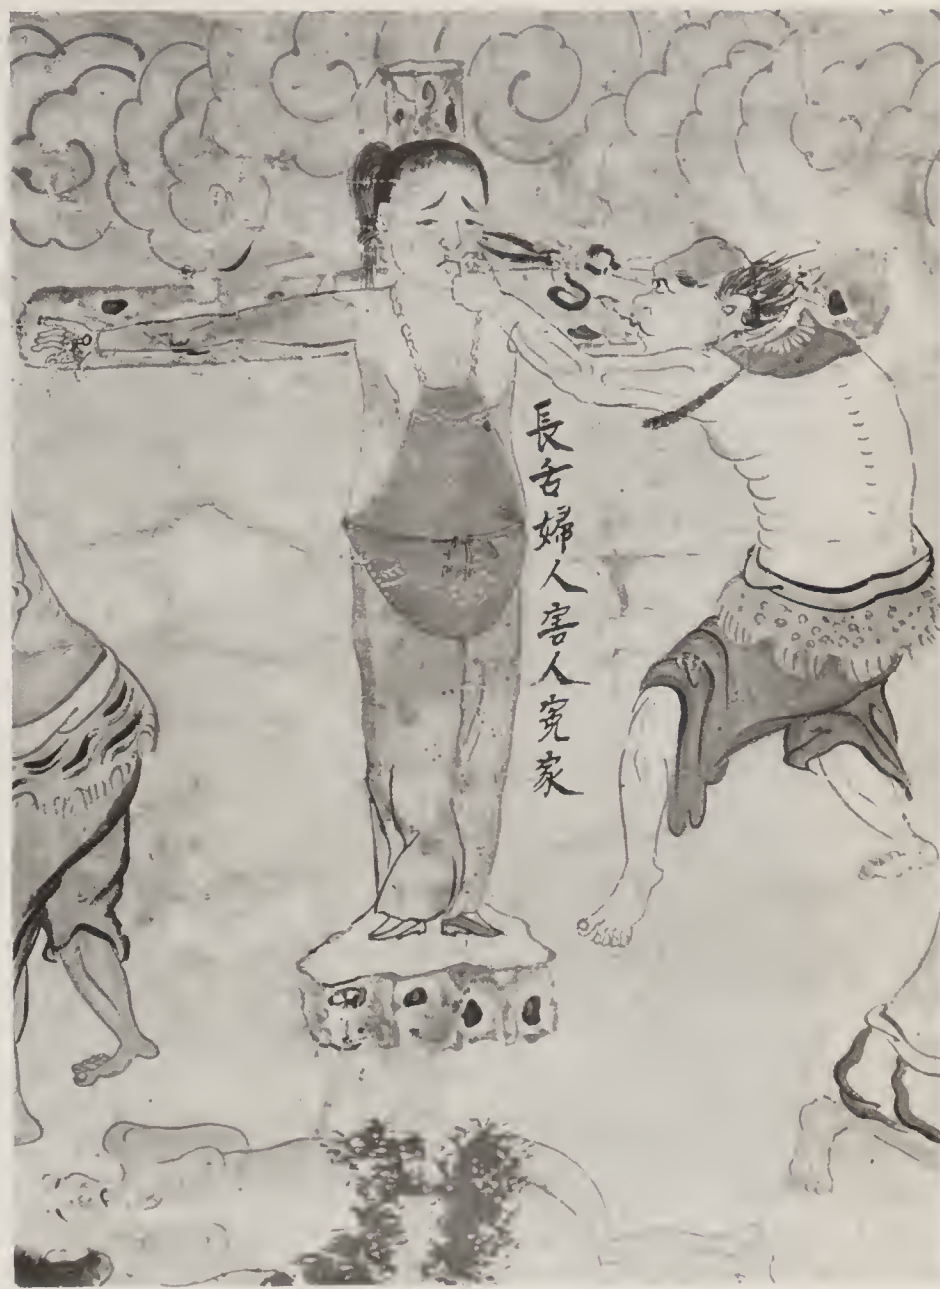 長舌婦人害人冤家